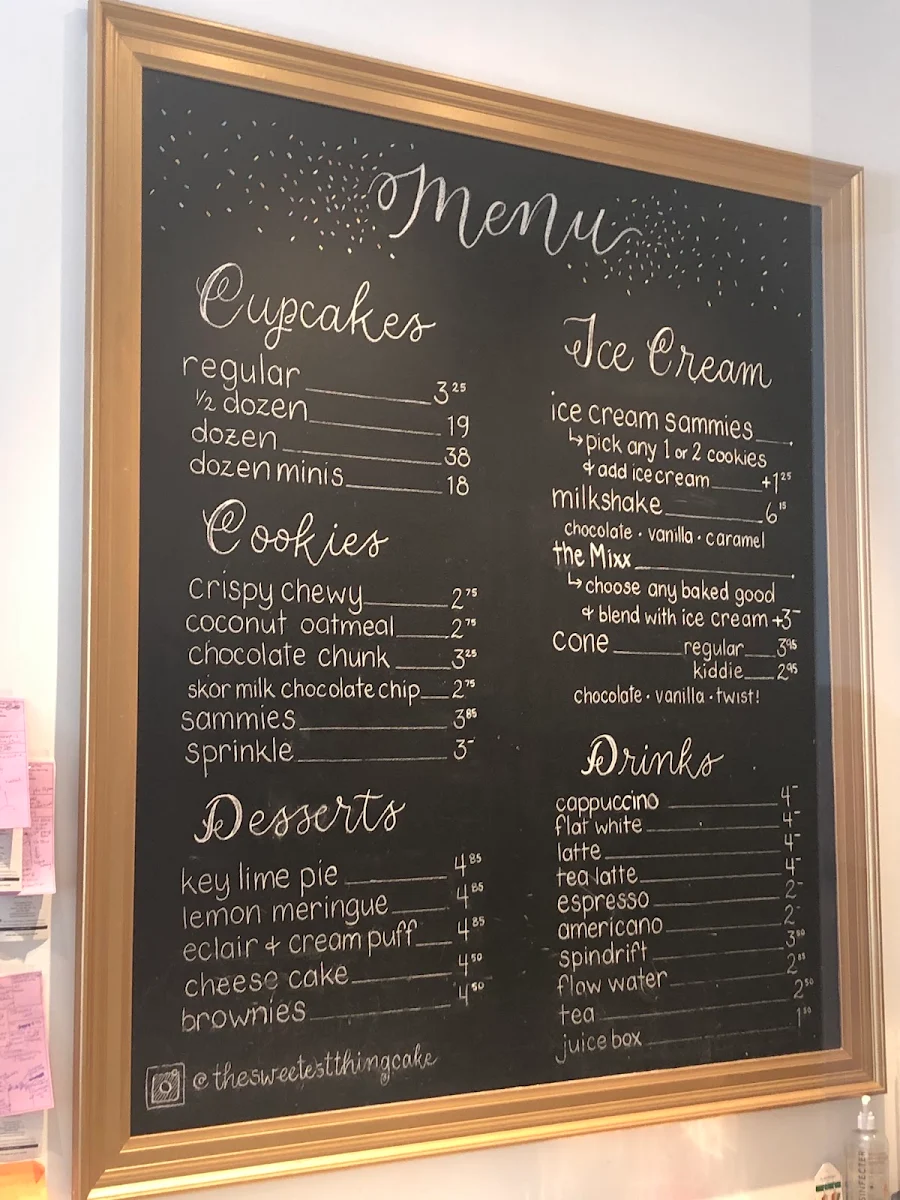 Menu
Cupcakes
regular 3 25
1/2 dozen 19
dozen 38
dozen minis 18
Cookies
crispy chewy 2 75
coconut oatmeal 2 75
chocolate chunk 3 25
skor milk chocolate chip 2 75
sammies 3 85
sprinkle 3-
Desserts
key lime pie 4 85
lemon meringue 4 85
eclair & cream puff 4 85
cheese cake 4 50
brownies 4 50
@thesweetestthingcake
Ice Cream
ice cream sammies
↳ pick any 1 or 2 cookies
& add ice cream +1 25
milkshake 6 15
chocolate · vanilla · caramel
the Mixx
↳ choose any baked good
& blend with ice cream +3-
cone regular 3 95
kiddie 2 95
chocolate · vanilla · twist!
Drinks
cappuccino 4-
flat white 4-
latte 4-
tea latte 4-
espresso 2-
americano 2-
spindrift 3 50
flow water 2 85
tea 2 50
juice box 1 50